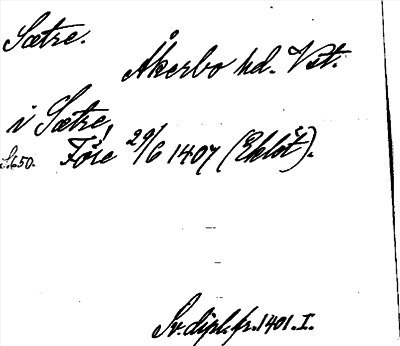 Sætre.
Åkerbo hd. Vst.
i Sætre,
S. 650. Före 29/6 1407 (Eklöt).
Sv. dipl. fr. 1401. I.